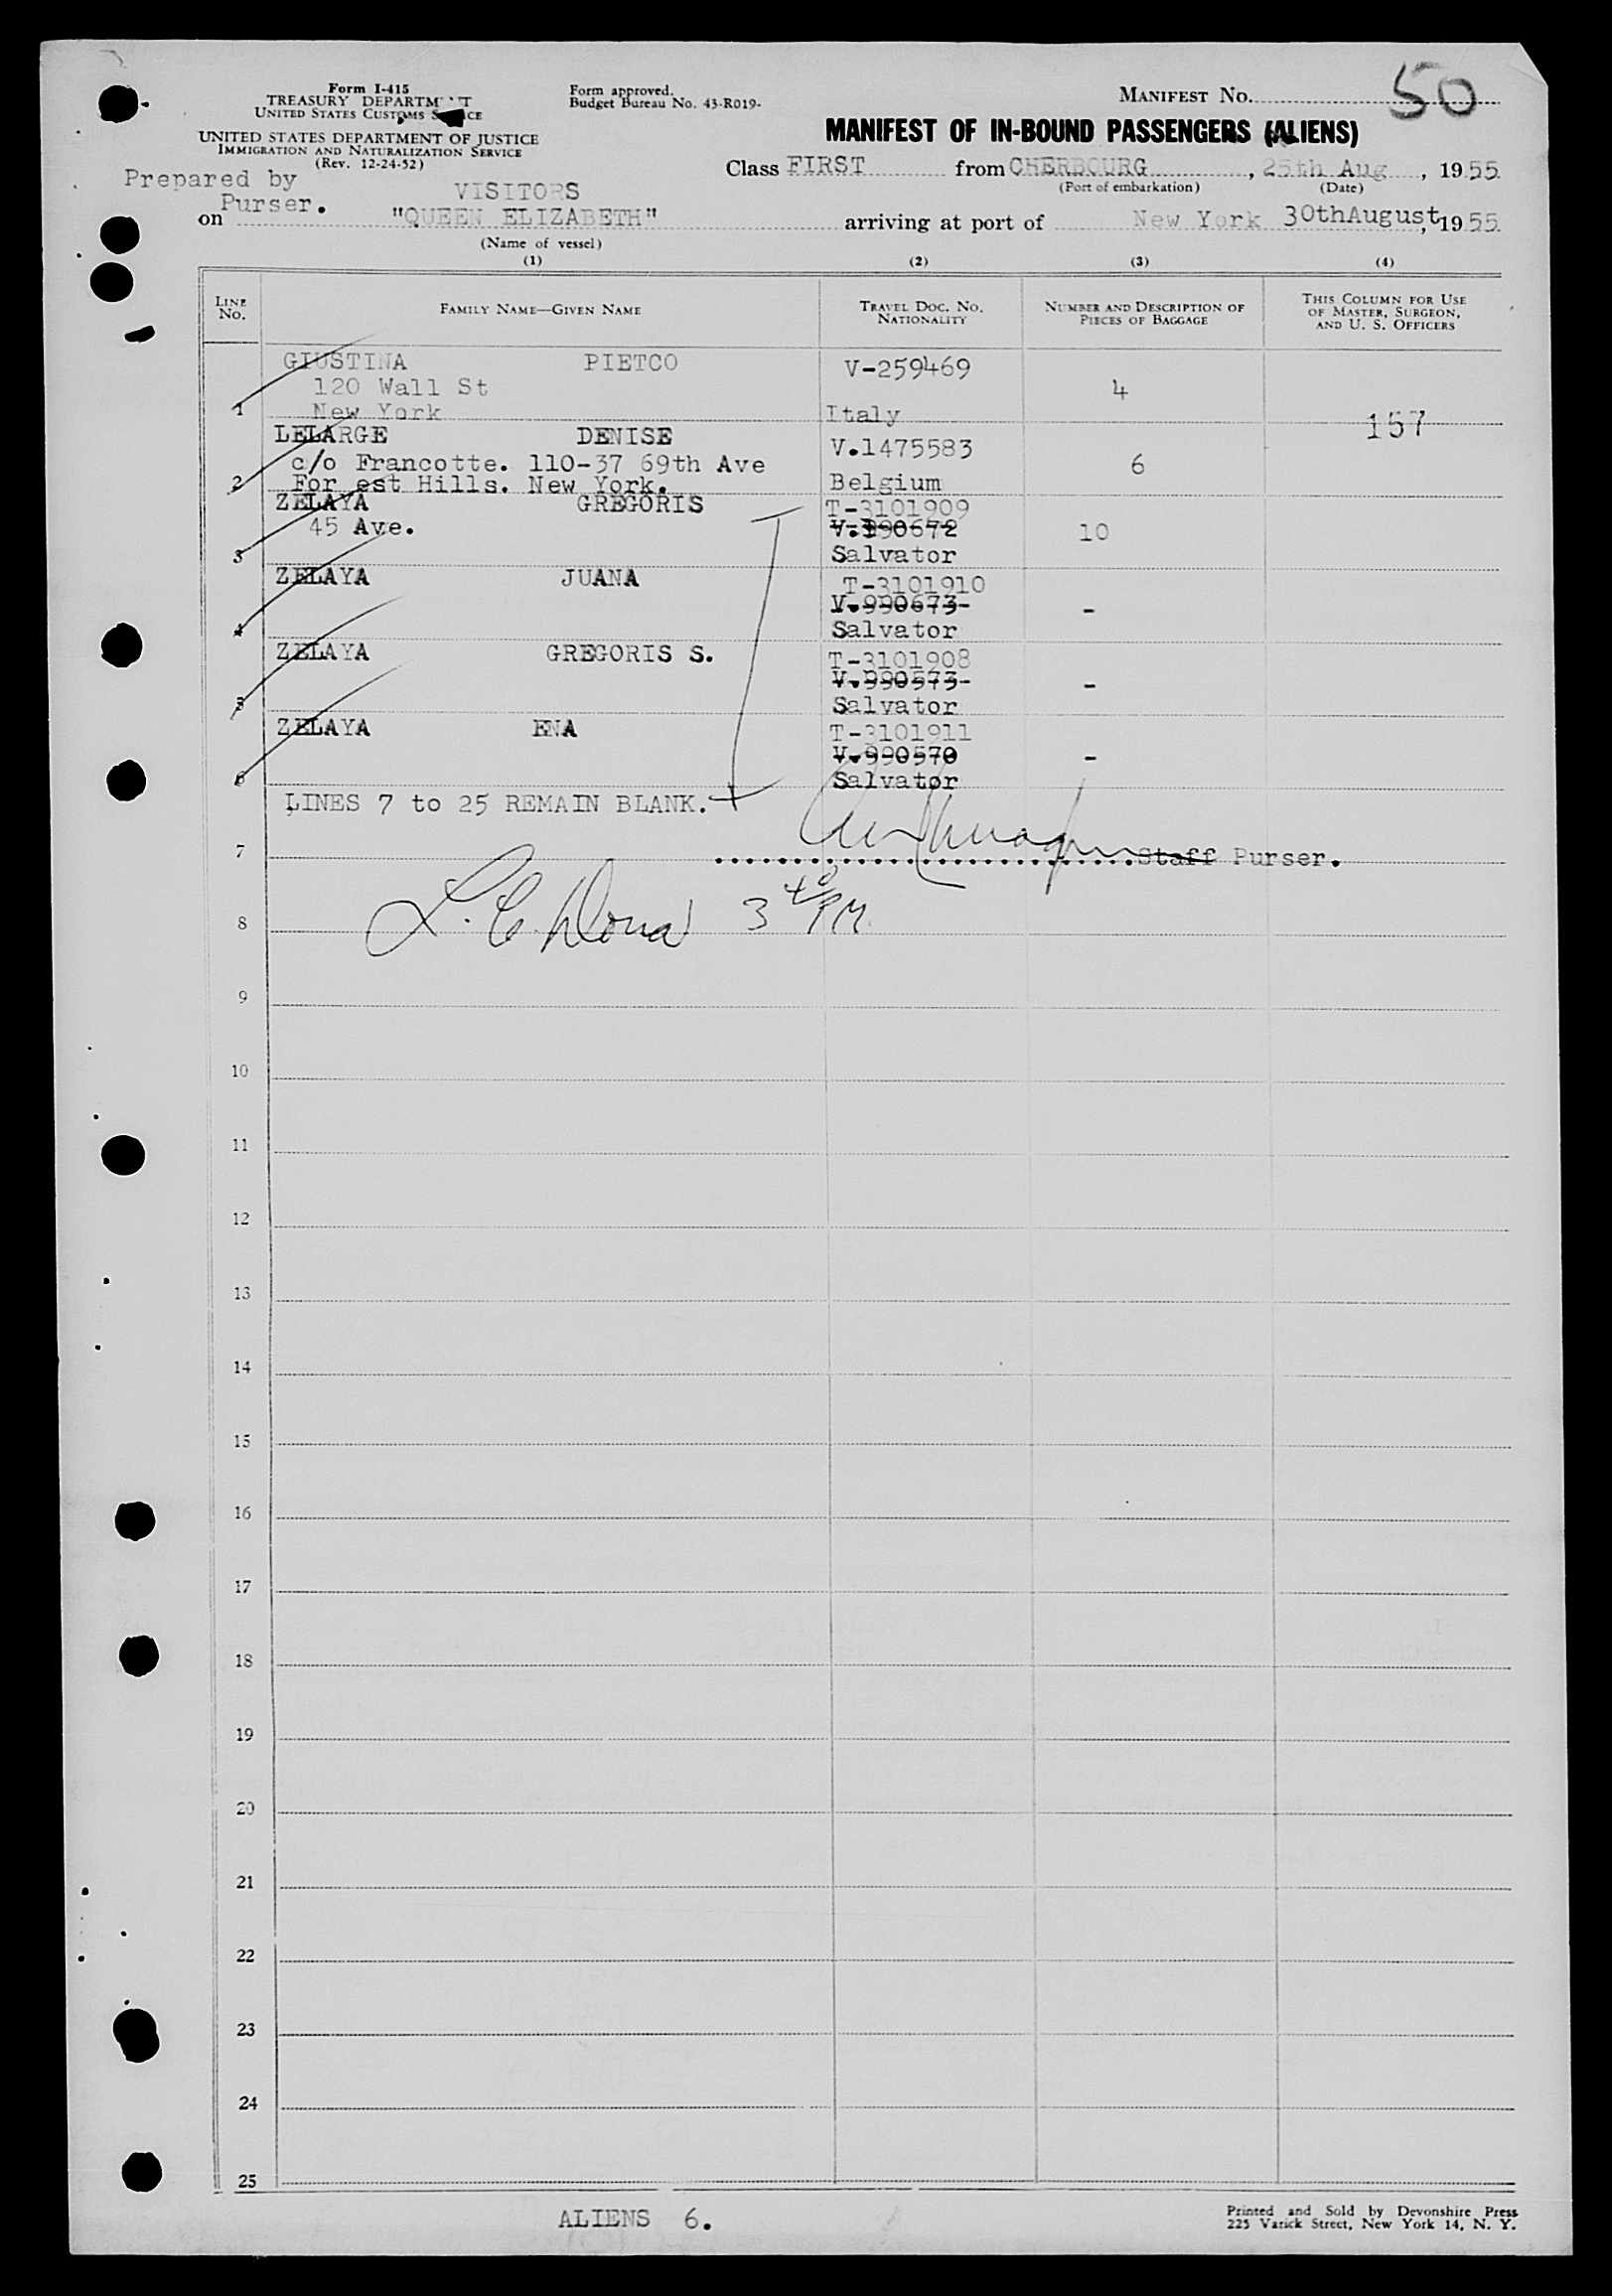 Form I-415
TREASURY DEPARTM T
UNITED STATES CUSTOMS S ICE
UNITED STATES DEPARTMENT OF JUSTICE
IMMIGRATION AND NATURALIZATION SERVICE
(Rev. 12-24-52)
Form approved.
Budget Bureau No. 43-R019-
MANIFEST No. 50
MANIFEST OF IN-BOUND PASSENGERS (ALIENS)
Class FIRST from CHERBOURG, 25th Aug, 1955
(Port of embarkation) (Date)
Prepared by
Purser.
VISITORS
on "QUEEN ELIZABETH" arriving at port of New York 30thAugust, 1955
(Name of vessel)
(1) (2) (3) (4)
LINE No. FAMILY NAME—GIVEN NAME TRAVEL DOC. NO. NATIONALITY NUMBER AND DESCRIPTION OF PIECES OF BAGGAGE THIS COLUMN FOR USE OF MASTER, SURGEON, AND U. S. OFFICERS
GIUSTINA PIETCO V-259469
120 Wall St 4
1 New York Italy 157
LELARGE DENISE V.1475583
c/o Francotte. 110-37 69th Ave 6
2 For est Hills. New York. Belgium
ZELAYA GREGORIS T-3101909
45 Ave. V.990672 10
3 Salvator
ZELAYA JUANA T-3101910
V.990673- -
4 Salvator
ZELAYA GREGORIS S. T-3101908
V.990573- -
5 Salvator
ZELAYA ENA T-3101911
V.990570 -
6 Salvator
LINES 7 to 25 REMAIN BLANK.
7 Staff Purser.
8 L. C. 3 PM
9
10
11
12
13
14
15
16
17
18
19
20
21
22
23
24
25
ALIENS 6.
Printed and Sold by Devonshire Press
225 Varick Street, New York 14, N. Y.